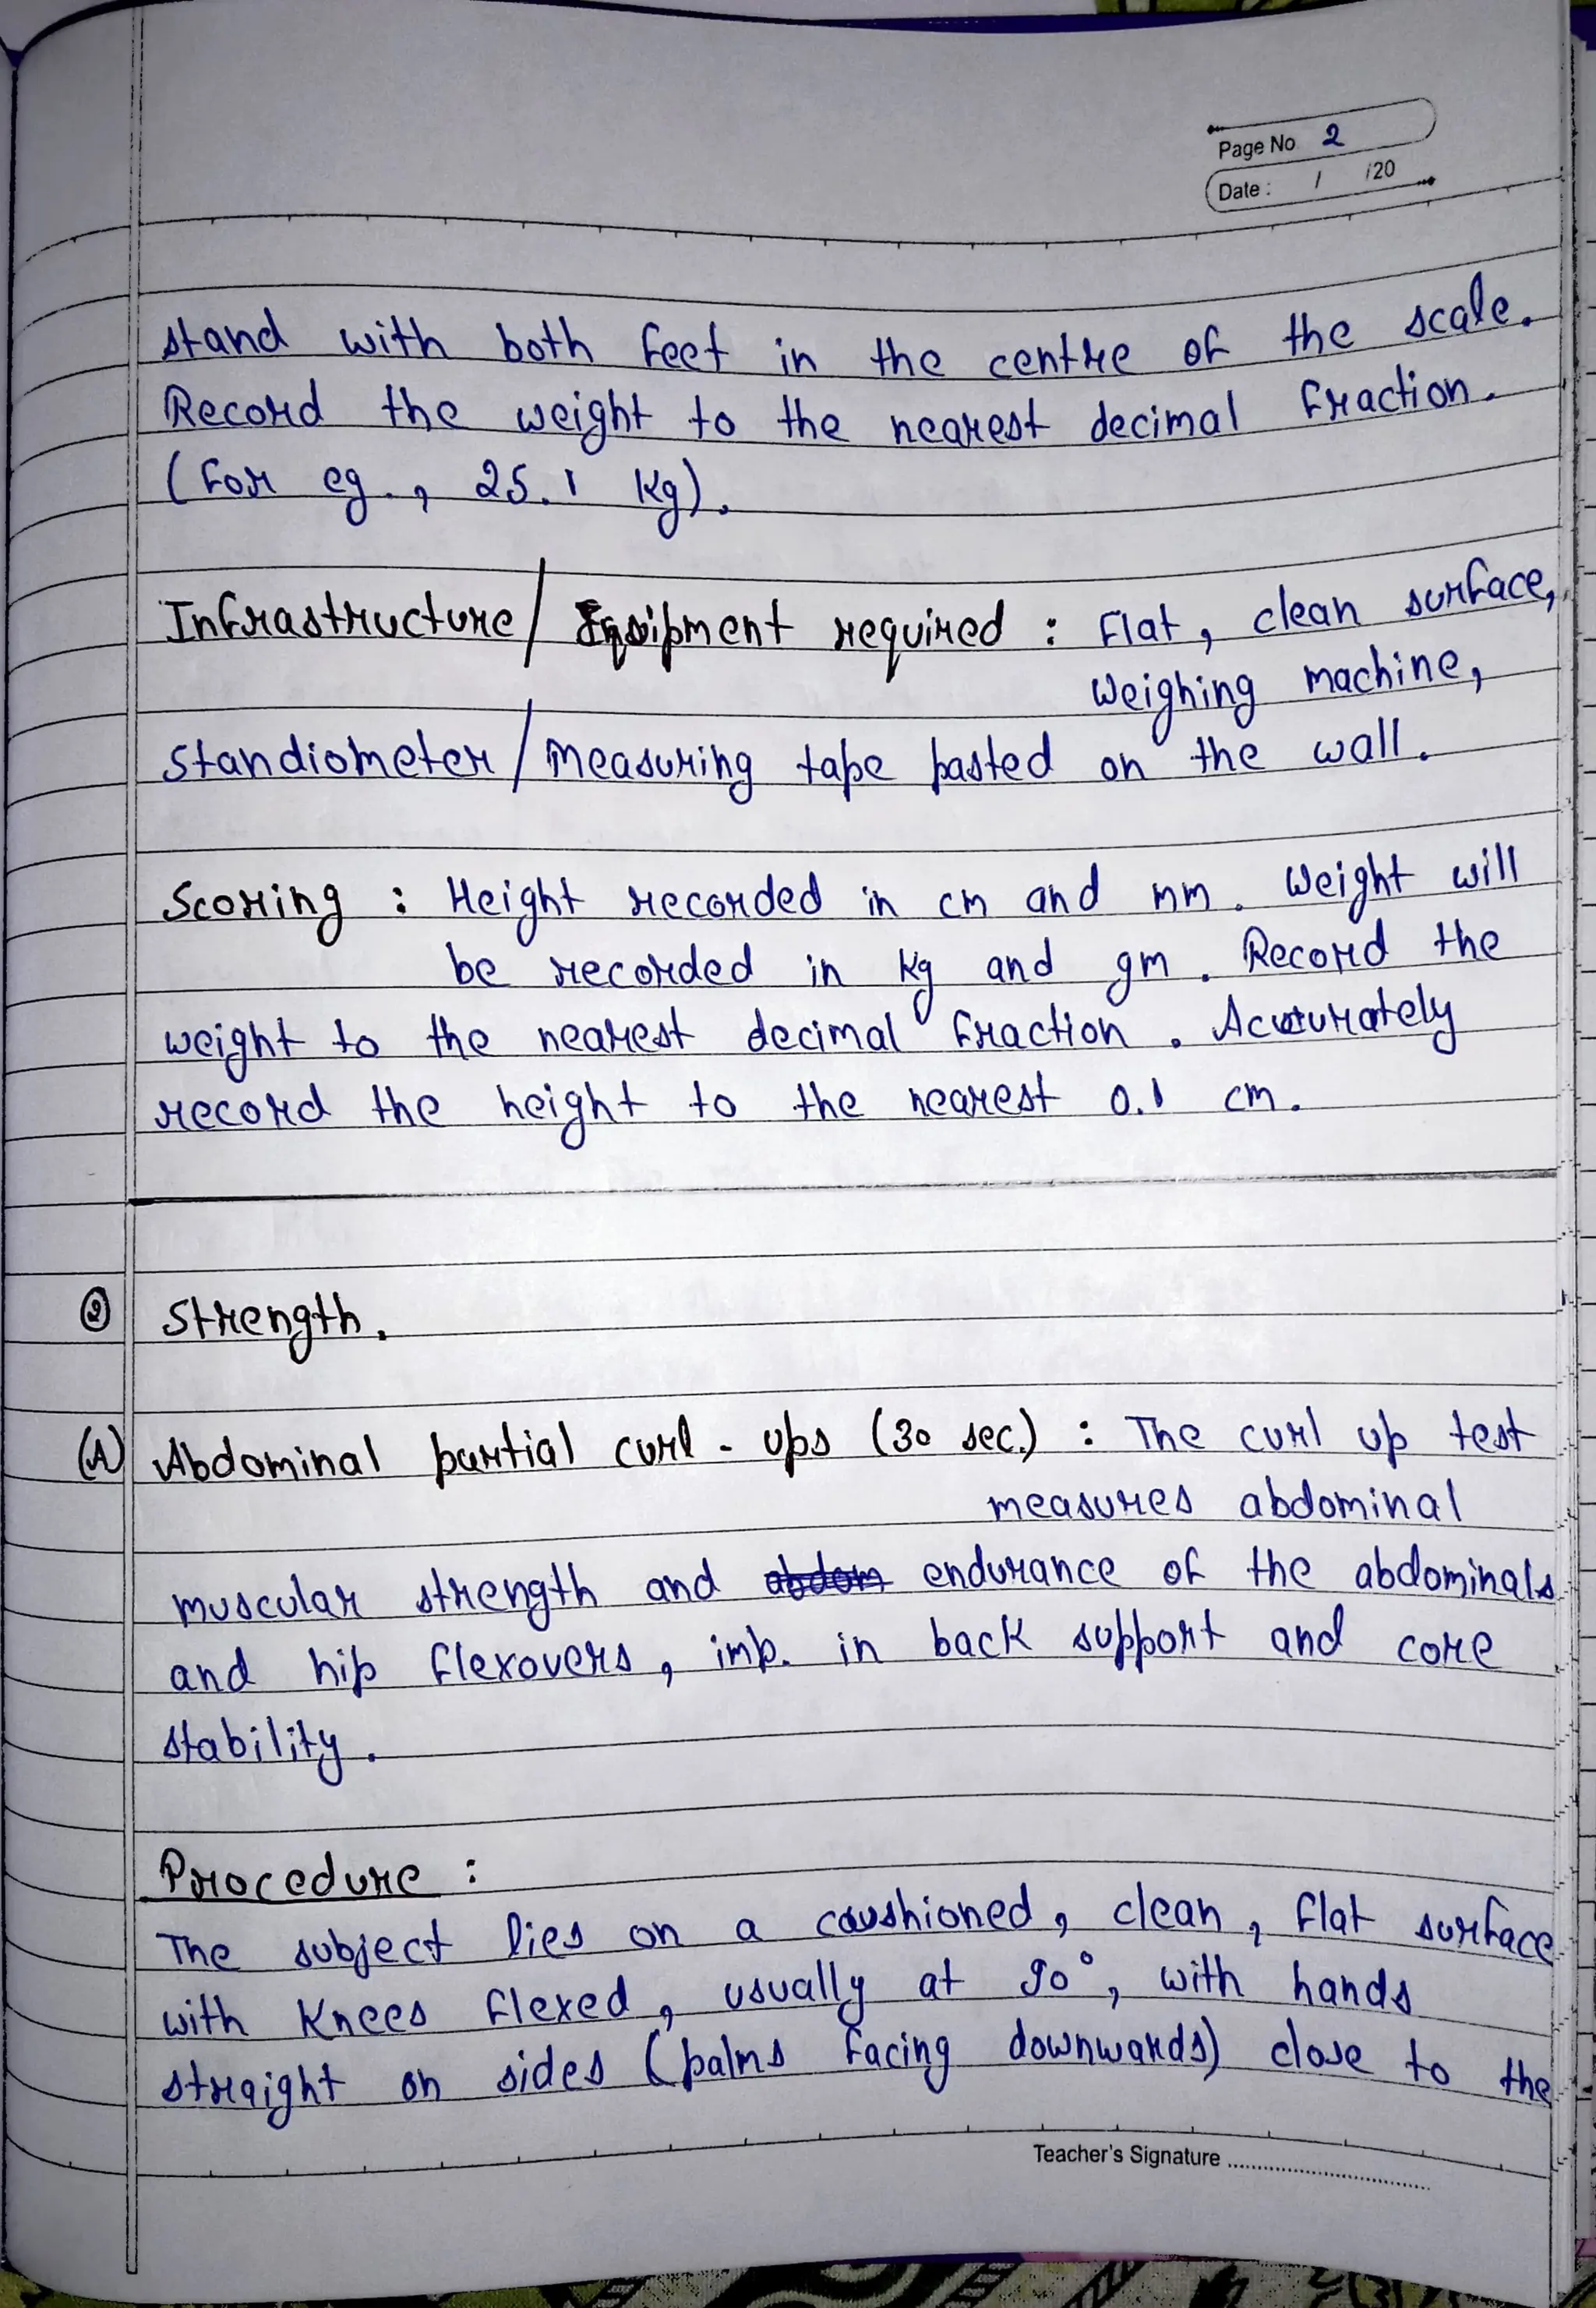 Page No 2
Date : / /20
stand with both feet in the centre of the scale.
Record the weight to the nearest decimal fraction.
(for eg., 25.1 Kg).
Infrastructure/ Equipment required : Flat, clean surface,
Weighing machine,
Standiometer/measuring tape pasted on the wall.
Scoring : Height recorded in cm and mm. Weight will
be recorded in kg and gm. Record the
weight to the nearest decimal fraction. Accurately
record the height to the nearest 0.1 cm.
② Strength.
(A) Abdominal partial curl-ups (30 sec.) : The curl up test
measures abdominal
muscular strength and abdom endurance of the abdominals
and hip flexovers, imp. in back support and core
stability.
Procedure :
The subject lies on a coushioned, clean, flat surface
with Knees flexed, usually at 90°, with hands
straight on sides (palms facing downwards) close to the
Teacher's Signature ................................